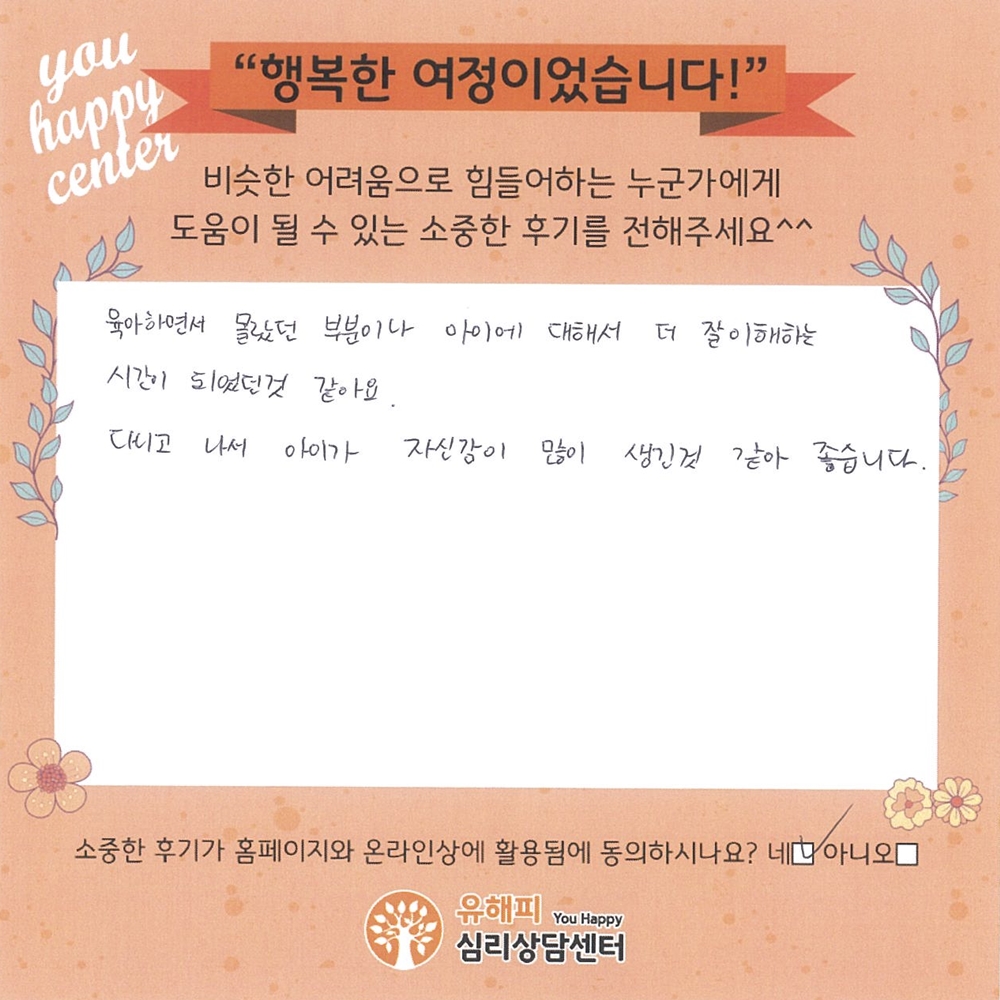 you
happy
center
“행복한 여정이었습니다!”
비슷한 어려움으로 힘들어하는 누군가에게
도움이 될 수 있는 소중한 후기를 전해주세요^^
육아하면서 몰랐던 부분이나 아이에 대해서 더 잘이해하는
시간이 되였던것 같아요.
다니고 나서 아이가 자신감이 많이 생긴것 같아 좋습니다.
소중한 후기가 홈페이지와 온라인상에 활용됨에 동의하시나요? 네 아니오
유해피 You Happy
심리상담센터